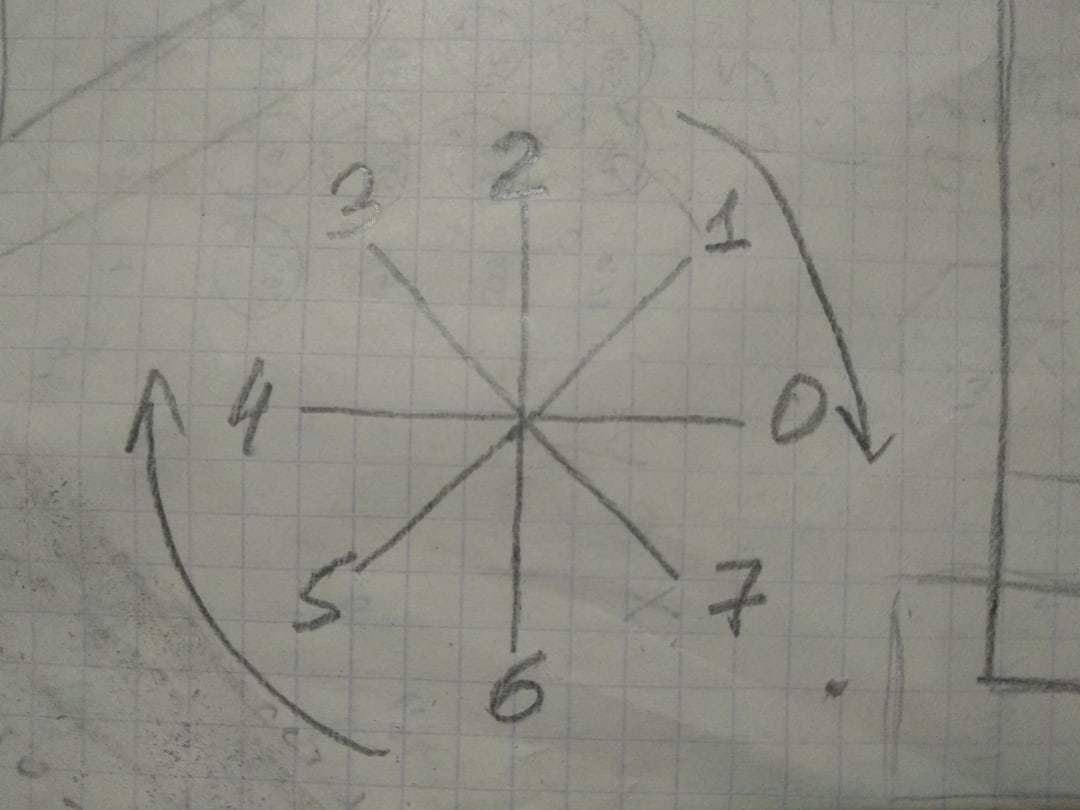 2
3
1
4
0
5
7
6